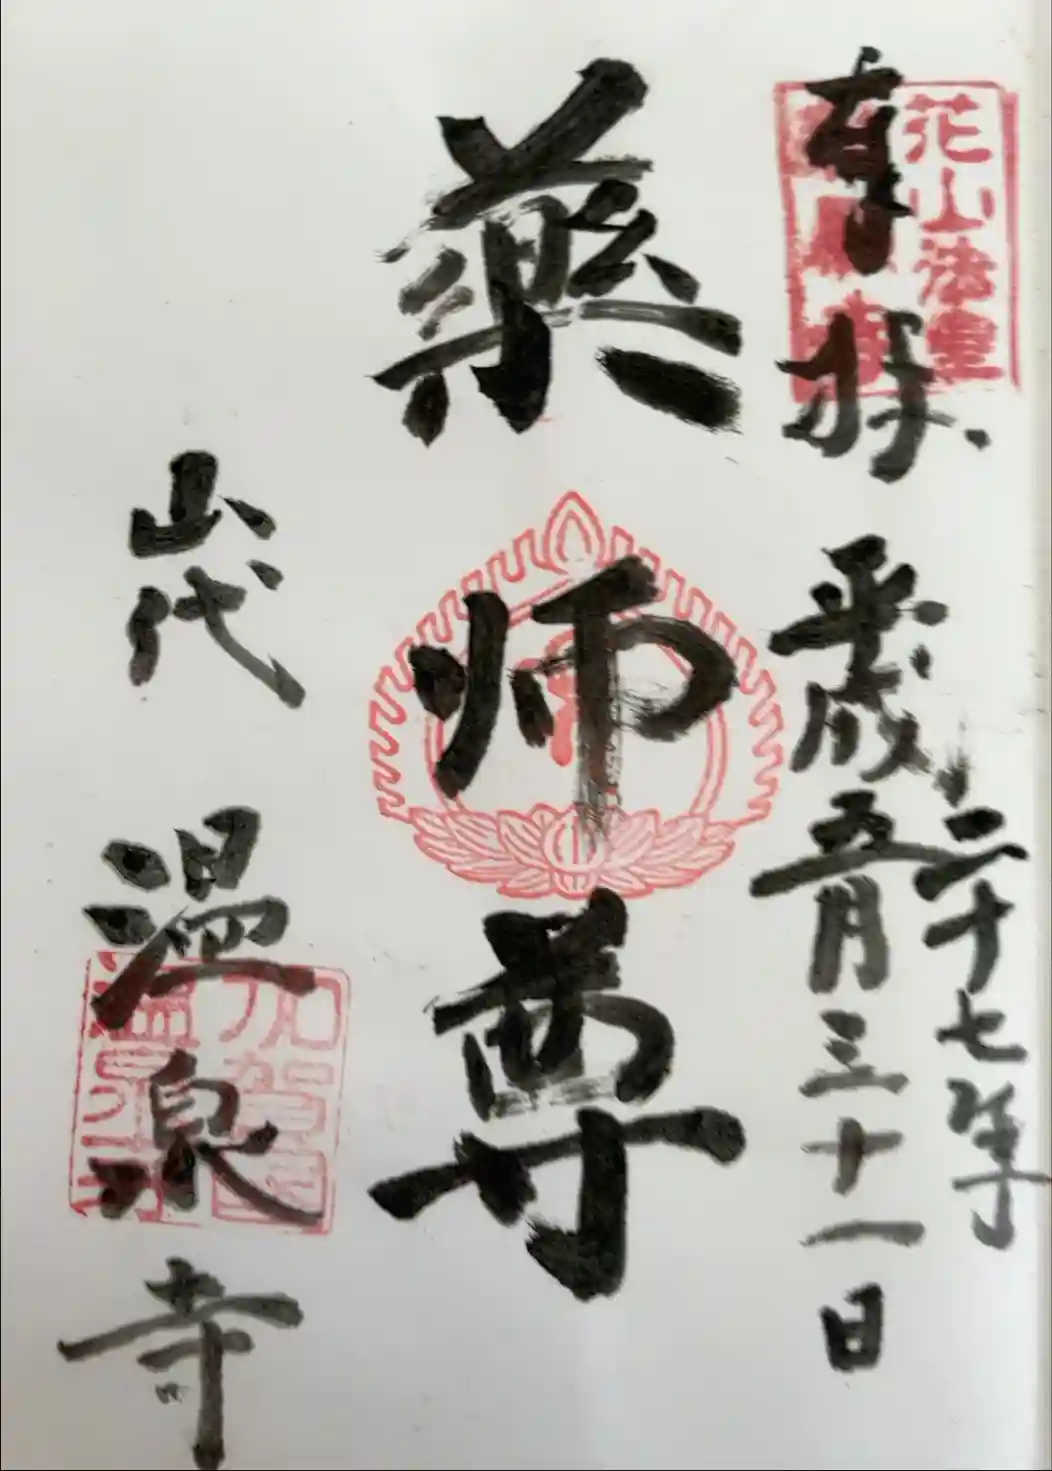 奉拝
平成二十七年
五月三十一日
花山法皇
薬師尊
山代
温泉寺
加賀
温泉寺